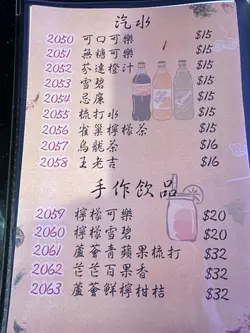 汽水
2050 可口可樂 $15
2051 無糖可樂 $15
2052 芬達橙汁 $15
2053 雪碧 $15
2054 忌廉 $15
2055 梳打水 $15
2056 雀巢檸檬茶 $15
2057 烏龍茶 $16
2058 王老吉 $16
手作飲品
2059 檸檬可樂 $20
2060 檸檬雪碧 $20
2061 蘆薈青蘋果梳打 $32
2062 芒芒百果香 $32
2063 蘆薈鮮檸柑桔 $32